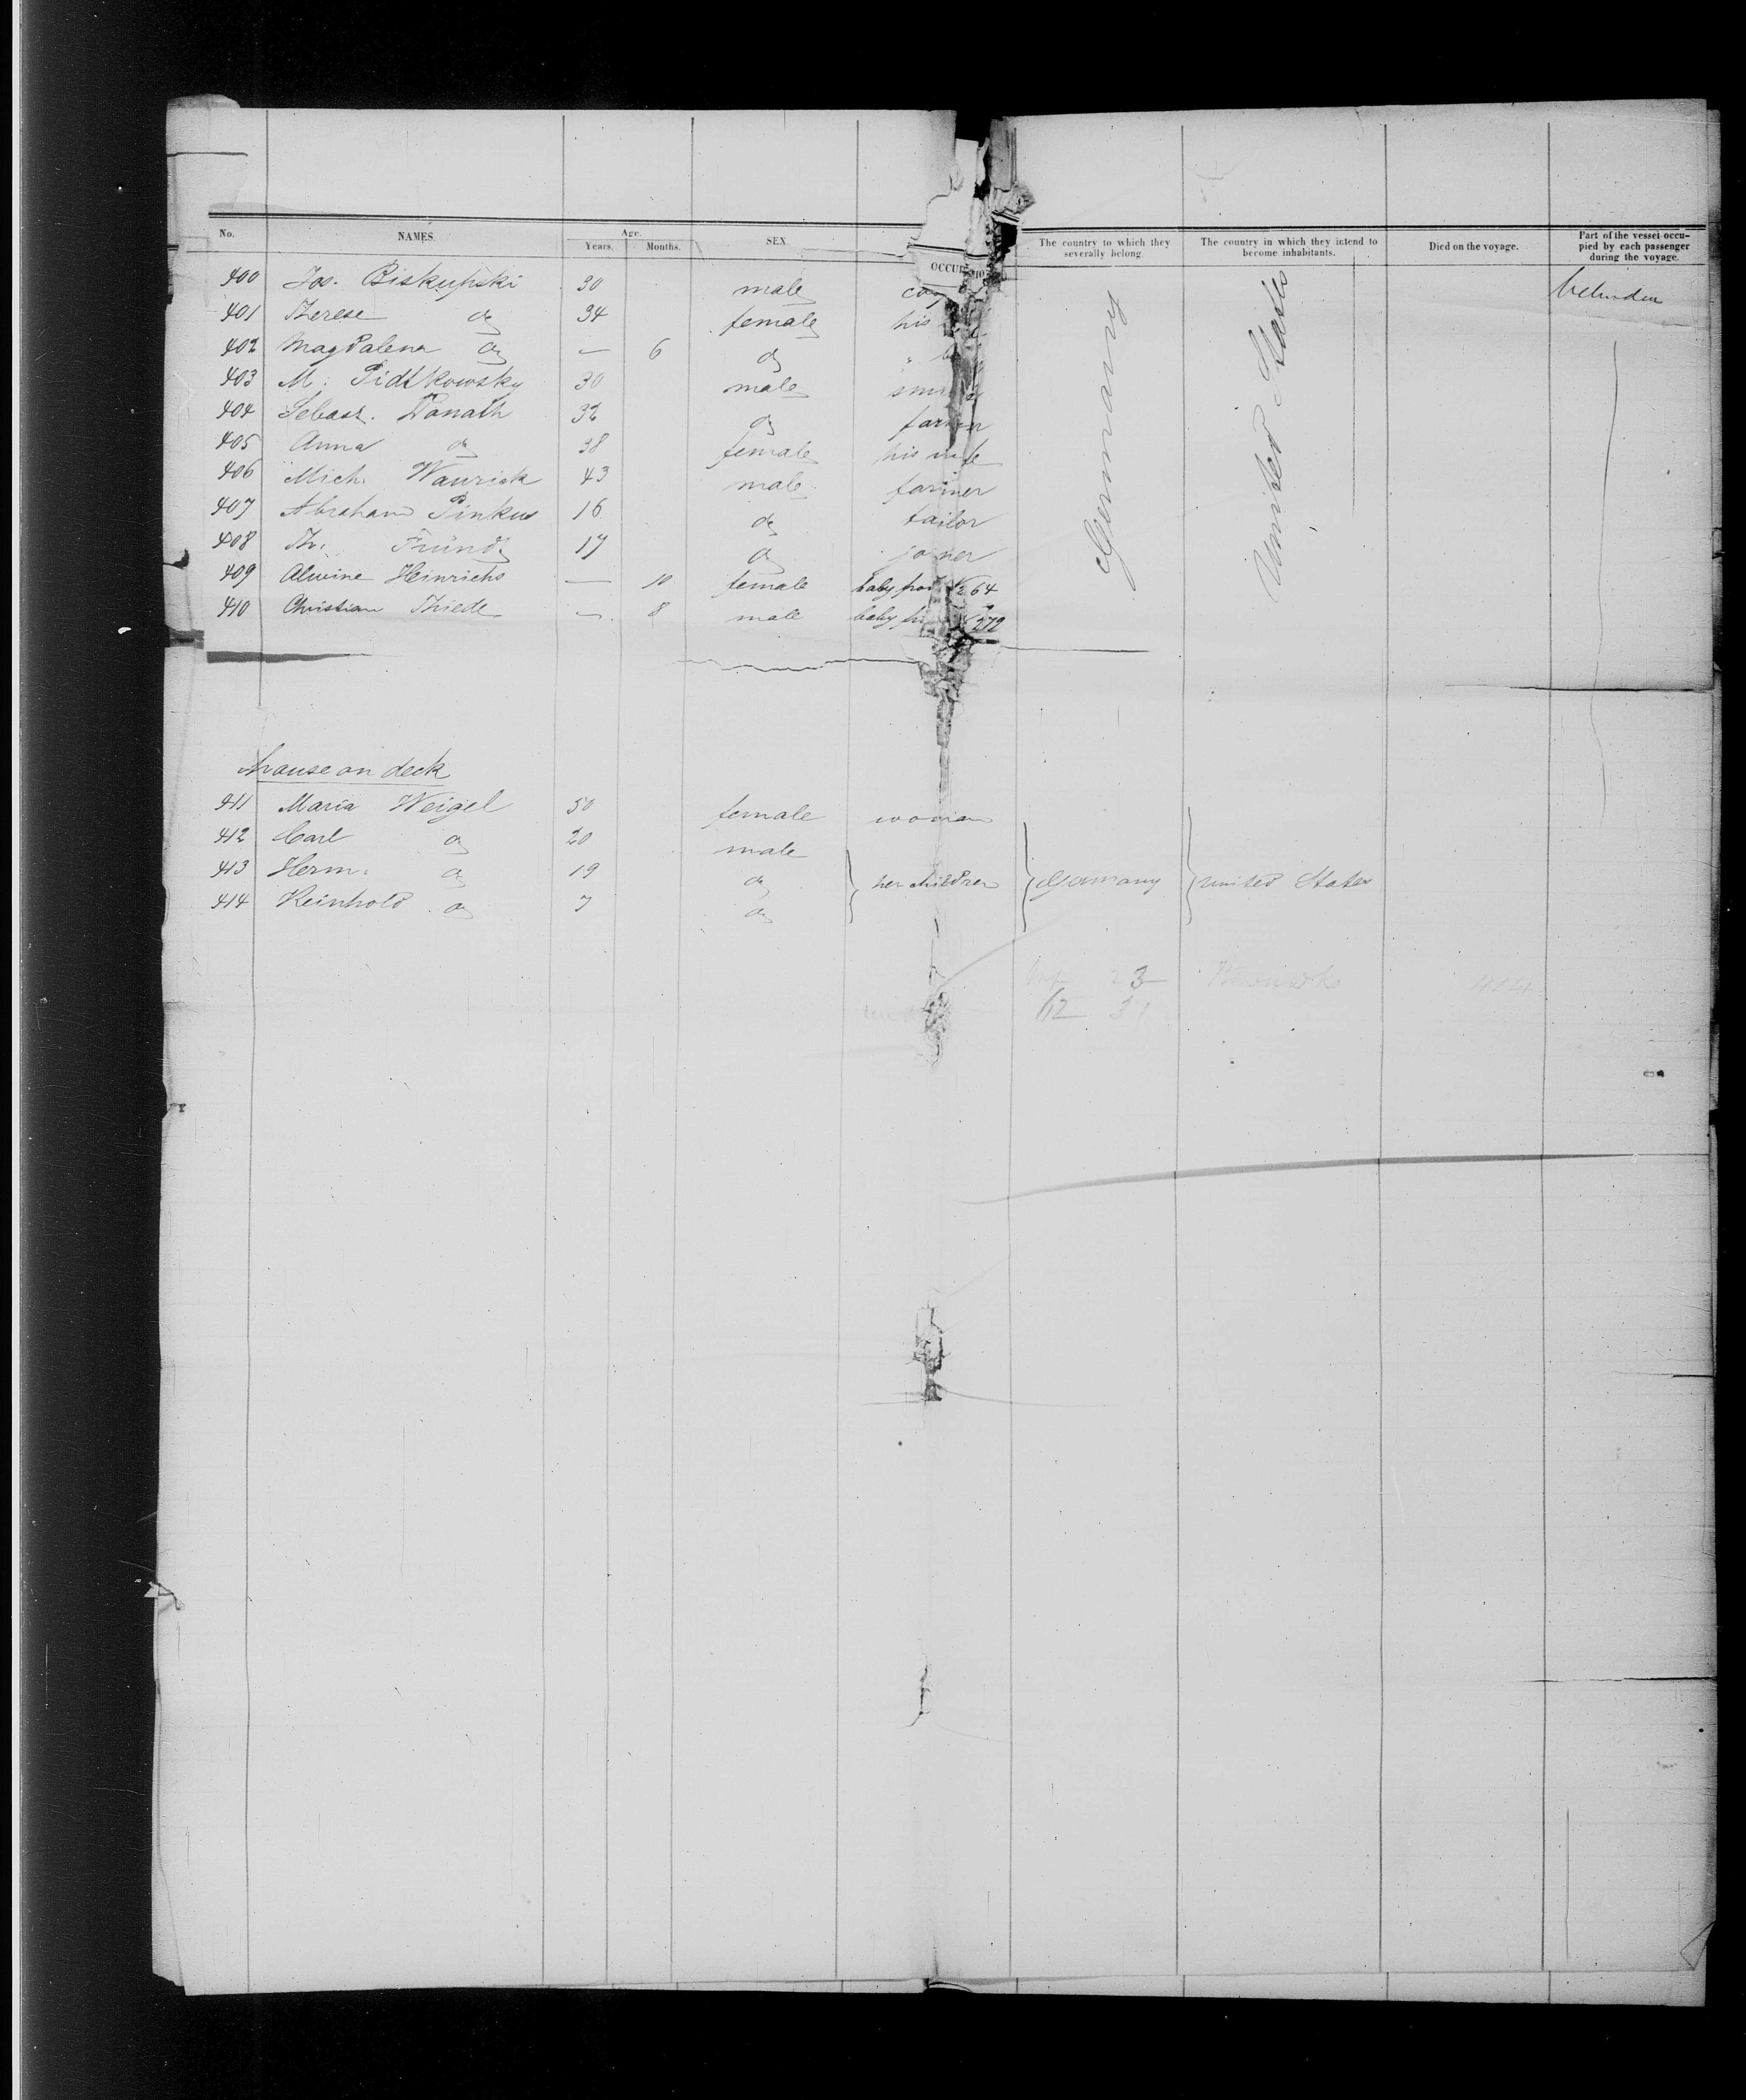 No. NAMES. Age. Years. Months. SEX OCCU The country to which they severally belong. The country in which they intend to become inhabitants. Died on the voyage. Part of the vessel occu- pied by each passenger during the voyage.
400 Jos. Biskupski 30 male
401 Therese do 34 female his
402 Magdalena do — 6 do "
403 M. Pidtkowsky 30 male
404 Sebast. Donath 32 do farmer
405 Anna do 38 female his wife
406 Mich. Wawrick 43 male farmer
407 Abraham Pinkus 16 do tailor
408 Th. Fründ 17 do joiner
409 Alwine Heinrichs — 10 female baby from № 64
410 Christian Thiede — 8 male baby 272
Germany
United States
house on deck
411 Maria Weigel 50 female woman
412 Carl do 20 male
413 Herm. do 19 do her children Germany united States
414 Reinhold do 7 do
23
12 31
414